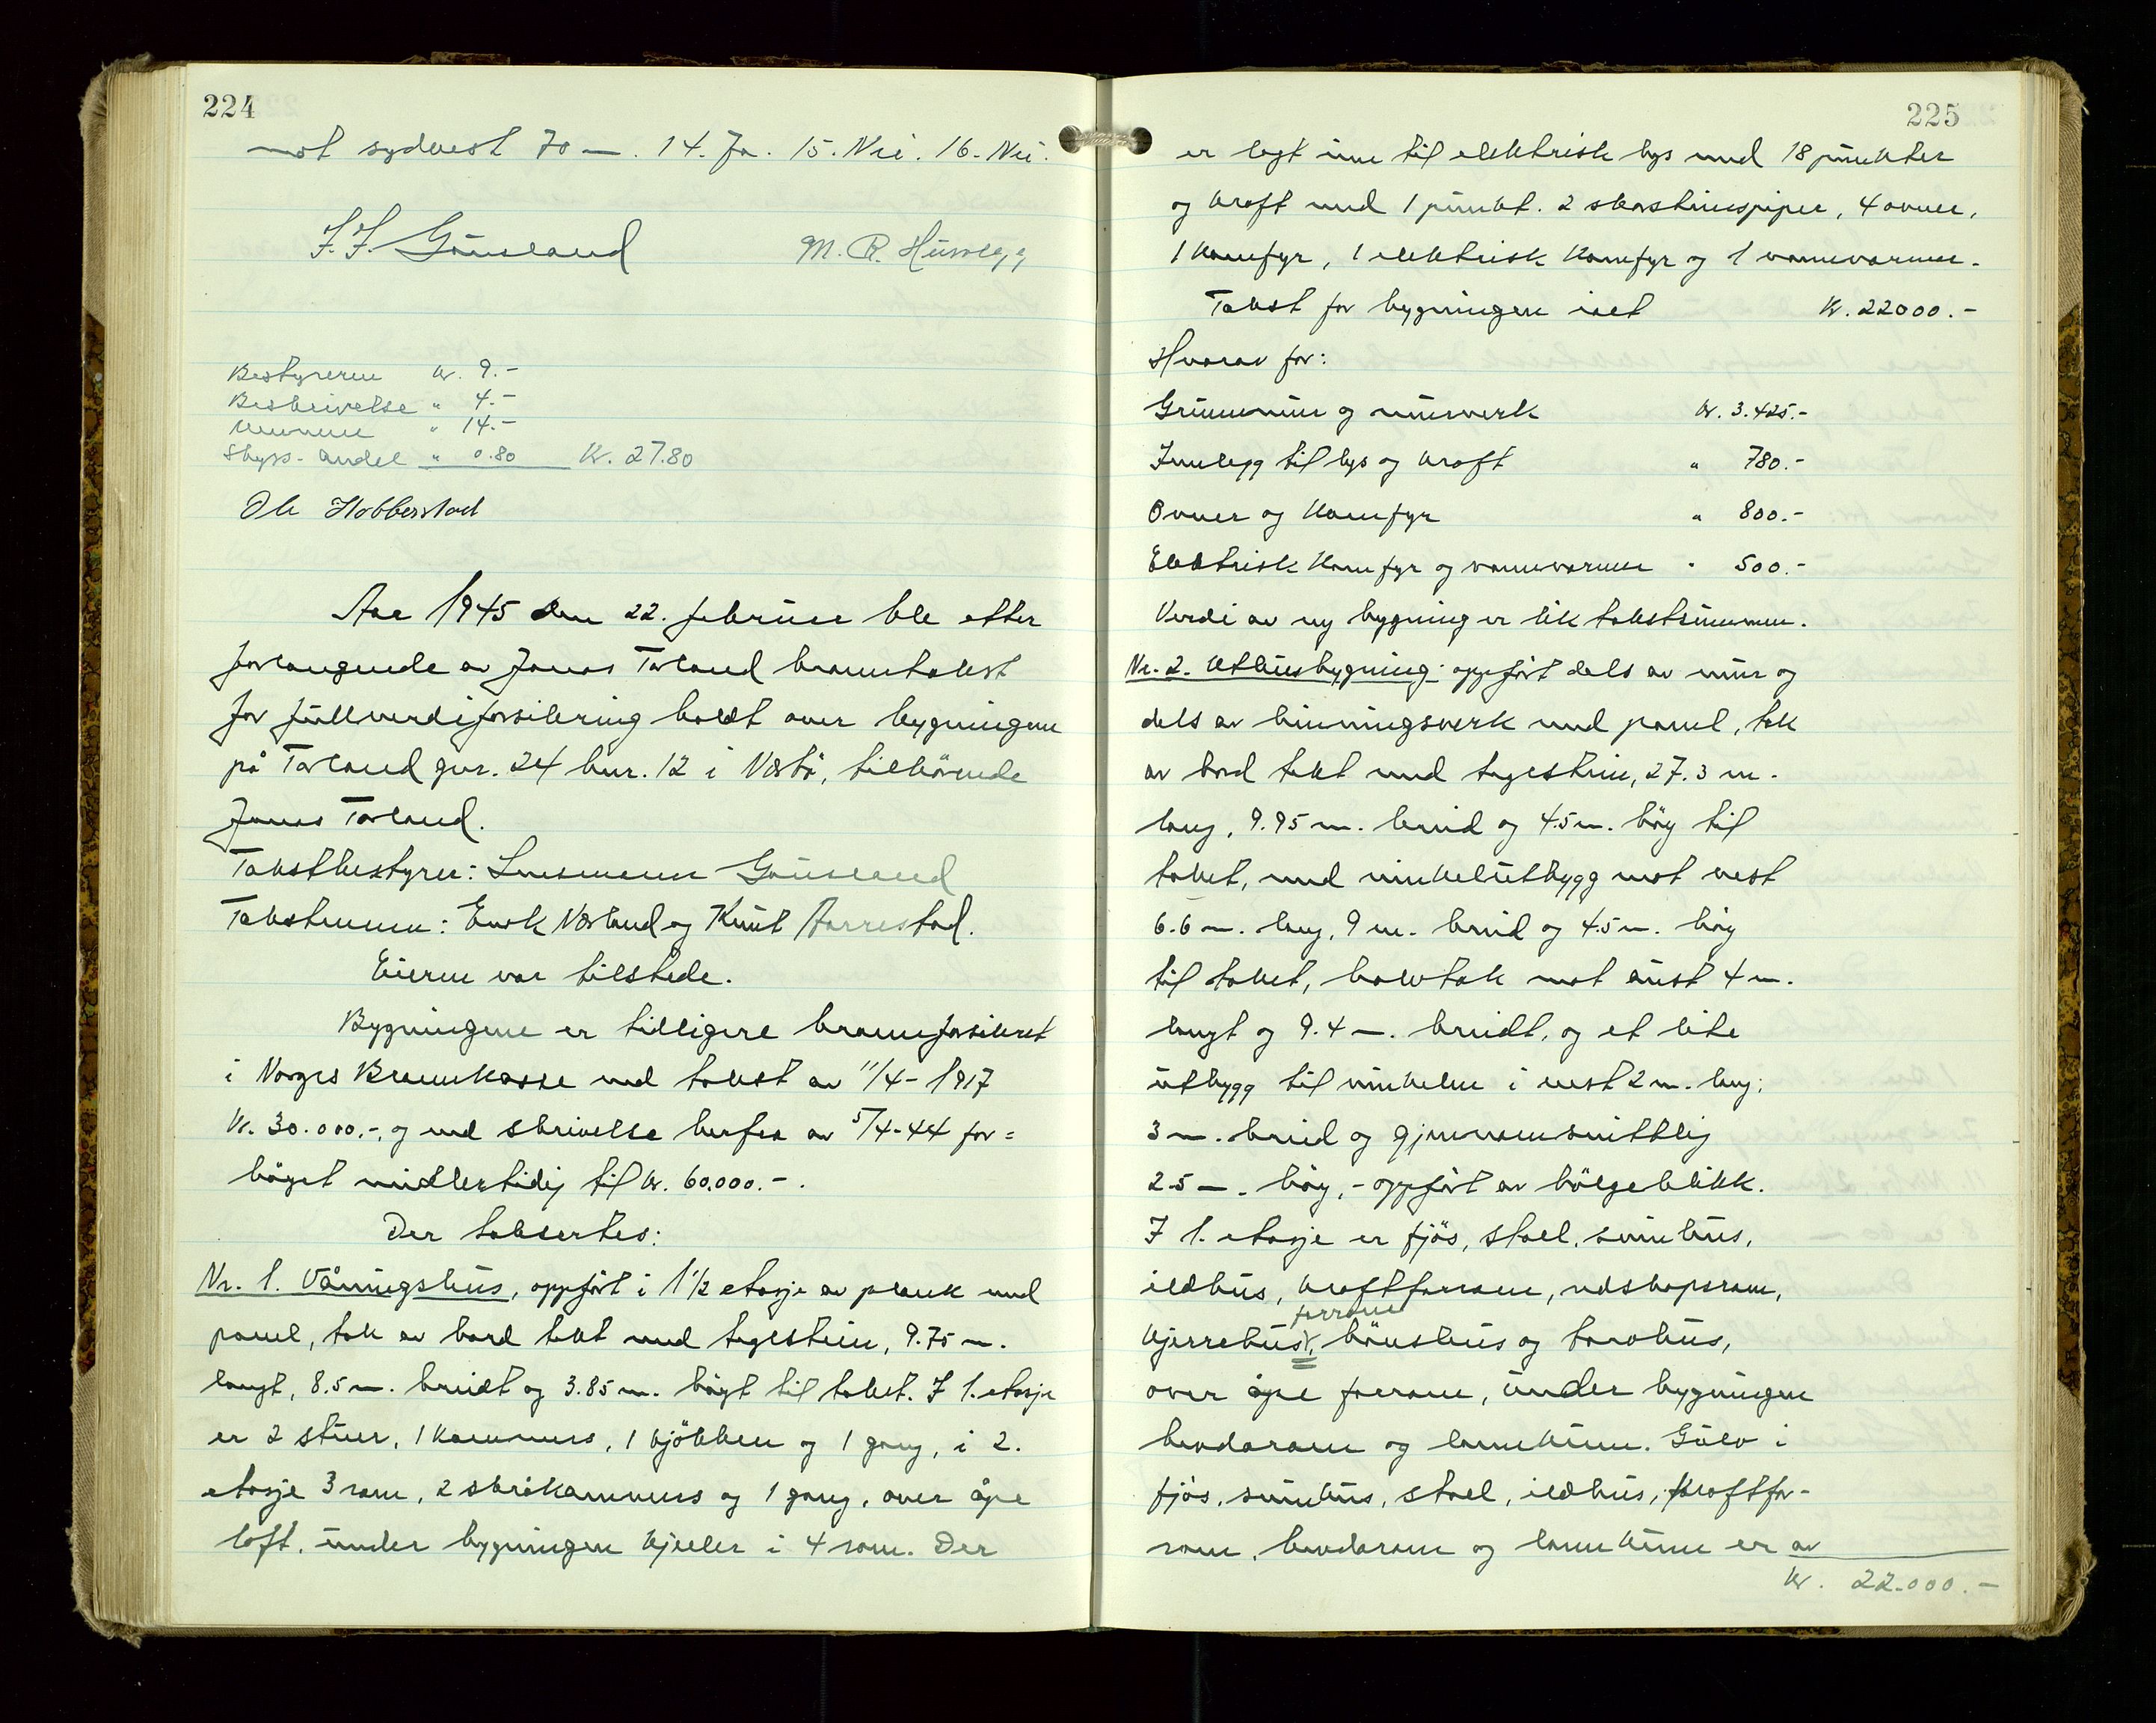 224
mot sydvest 70 m. 14. Ja. 15. Nei. 16. Nei.
T. T. Gausland M. R. Husvegg
Bestyreren kr. 9.-
Beskrivelse " 4.-
Mennene " 14.-
Skyss-andel " 0.80 Kr. 27.80
Ole Hobberstad
Aar 1945 den 22. februar ble etter
forlangende av Jonas Torland branntakst
for fullverdiforsikring holdt over bygningene
på Torland gnr. 24 bnr. 12 i Nærbö, tilhörende
Jonas Torland.
Takstbestyrer: Lensmann Gausland
Takstmenn: Enok Norland og Knut Aarrestad.
Eieren var tilstede.
Bygningene er tidligere brannforsikret
i Norges Brannkasse med takst av 11/4-1917
kr. 30.000.-, og ved skrivelse herfra av 5/4-44 for=
höyet midlertidig til kr. 60.000.-.
Der taksertes:
Nr. 1. Våningshus, oppfört i 1 1/2 etasje av plank med
panel, tak av bord tekt med teglstein, 9.75 m.
langt, 8.5 m. breidt og 3.85 m. högt til taket. I 1. etasje
er 2 stuer, 1 kammers, 1 kjökken og 1 gang, i 2.
etasje 3 rom, 2 skråkammers og 1 gang, over åpe
loft, under bygningen kjeller i 4 rom. Der
225
er lagt inn til elektrisk lys med 18 punkter
og kraft med 1 punkt. 2 skorsteinspiper, 4 ovner,
1 komfyr, 1 elektrisk komfyr og 1 vannvarmer.
Takst for bygningen idet kr. 22000.-
Hvorav for:
Grunnmur og murverk kr. 3.425.-
Innlegg til lys og kraft " 780.-
Ovner og komfyr " 800.-
Elektrisk komfyr og vannvarmer " 500.-
Verdi av ny bygning er lik takstsummen.
Nr. 2. Uthusbygning: oppfört dels av mur og
dels av binningsverk med panel, tak
av bord tekt med teglstein, 27.3 m.
lang, 9.95 m. breid og 4.5 m. höy til
taket, med vinkelutbygg mot vest
6.6 m. lang, 9 m. breid og 4.5 m. höy
til taket, halvtak mot aust 4 m.
langt og 9.4 m. breidt, og et lite
utbygg til vinkelen i vest 2 m. lang,
3 m. breid og gjennomsnittlig
2.5 m. höy, - oppfört av bölgeblikk.
I 1. etasje er fjös, stall, svinehus,
ildhus, kraftforrom, redskapsrom,
forrom
kjerrehus, hönsehus og torvhus,
over åpe forrom, under bygningen
landarom og lannkum. Gulv i
fjös, svinehus, stall, ildhus, kraftfor-
rom, landarom og lannkum er av
kr. 22.000.-